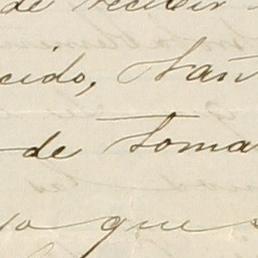 de recibir
cido, tan
de toma
yo que s